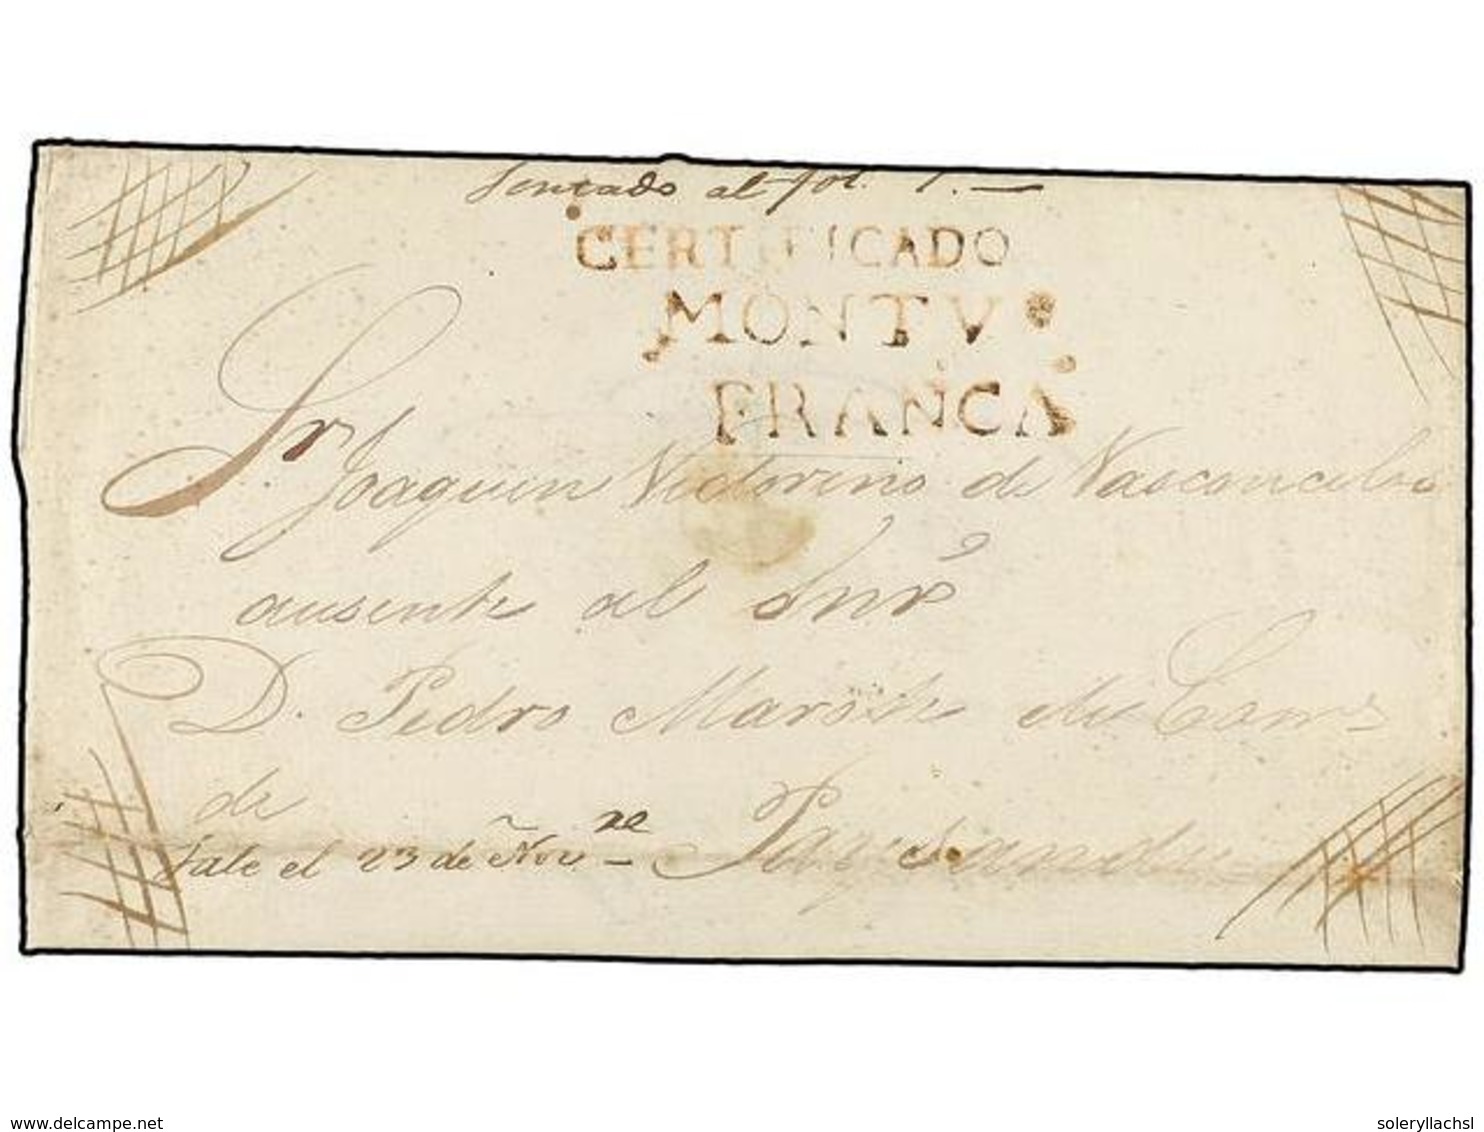 Sentado al fol. 1. —
CERTIFICADO
MONTV
FRANCA
Sr Joaquin Victorino de Vasconcelos
ausente al Snr
D. Pedro de
de
Sale el 23 de Nov.re Paysandu
delcampe.net
soleryllachsl